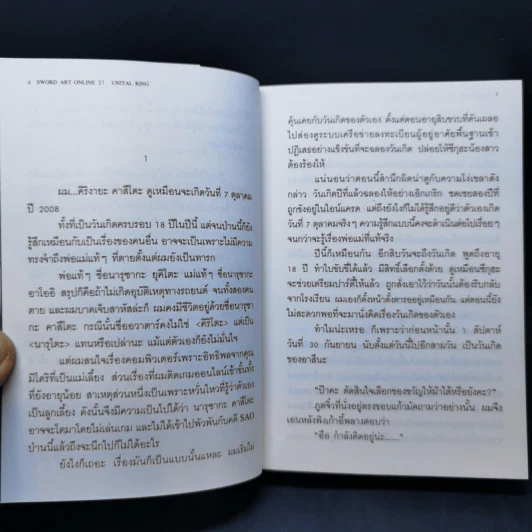 6 SWORD ART ONLINE 21 UNITAL RING
1
ผม...คิริงายะ คาสึโตะ ดูเหมือนจะเกิดวันที่ 7 ตุลาคม
ปี 2008
ทั้งที่เป็นวันเกิดครบรอบ 18 ปีในปีนี้ แต่จนป่านนี้ก็ยัง
รู้สึกเหมือนกับเป็นเรื่องของคนอื่น อาจจะเป็นเพราะไม่มีความ
ทรงจำถึงพ่อแม่แท้ๆ ที่ตายตั้งแต่ผมยังเป็นทารก
พ่อแท้ๆ ชื่อนารุซากะ ยุคิโตะ แม่แท้ๆ ชื่อนารุซากะ
อาโออิ สรุปก็คือถ้าไม่เกิดอุบัติเหตุทางรถยนต์ จนทั้งสองคน
ตาย และผมบาดเจ็บสาหัสล่ะก็ ผมคงมีชีวิตอยู่ด้วยชื่อนารุซา
กะ คาสึโตะ กรณีนั้นชื่ออวาตาร์คงไม่ใช่ <คิริโตะ> แต่เป็น
<นารุโตะ> แทนหรือเปล่านะ แม้แต่ตัวเองก็ยังไม่มั่นใจ
แต่ผมสนใจเรื่องคอมพิวเตอร์เพราะอิทธิพลจากคุณ
มิโดริที่เป็นแม่เลี้ยง ส่วนเรื่องที่ผมติดเกมออนไลน์เข้าขั้นทั้ง
ที่ยังอายุน้อย สาเหตุส่วนหนึ่งเป็นเพราะหวั่นไหวที่รู้ว่าตัวเอง
เป็นลูกเลี้ยง ดังนั้นจึงมีความเป็นไปได้ว่า นารุซากะ คาสึโตะ
อาจจะโตมาโดยไม่เล่นเกม และไม่ได้เข้าไปพัวพันกับคดี SAO
ป่านนี้แล้วถึงจะนึกไปก็ไม่ได้อะไร
ยังไงก็เถอะ เรื่องมันก็เป็นแบบนั้นแหละ ผมเริ่มไม่
คุ้นเคยกับวันเกิดของตัวเอง ตั้งแต่ตอนอายุสิบขวบที่ดันเผลอ
ไปส่องดูระบบเครือข่ายลงทะเบียนผู้อยู่อาศัยพื้นฐานเข้า
ปฏิเสธอย่างแข็งขันที่จะฉลองวันเกิด ปล่อยให้ซึกุฮะน้องสาว
ต้องร้องไห้
แน่นอนว่าตอนนี้สำนึกผิดน่าดูกับความโง่เขลาดัง
กล่าว วันเกิดปีที่แล้วฉลองให้อย่างเอิกเกริก ชดเชยสองปีที่
ถูกขังอยู่ในไอน์แครด แต่ถึงยังไงก็ไม่ได้รู้สึกอยู่ดีว่าตัวเองเกิด
วันที่ 7 ตุลาคมจริงๆ ความรู้สึกแบบนี้คงจะดำเนินต่อไปเรื่อยๆ
จนกว่าจะรู้เรื่องพ่อแม่ที่แท้จริง
ปีนี้ก็เหมือนกัน อีกสิบวันจะถึงวันเกิด พูดถึงอายุ
18 ปี ทำใบขับขี่ได้แล้ว มีสิทธิ์เลือกตั้งด้วย ดูเหมือนซึกุฮะ
จะช่วยเตรียมปาร์ตี้ให้แล้ว ถูกสั่งเอาไว้ว่าวันนั้นต้องรีบกลับ
จากโรงเรียน ผมเองก็ตั้งหน้าตั้งตารออยู่เหมือนกัน แต่ตอนนี้ยัง
ไม่สะดวกพอที่จะมานั่งคิดเรื่องวันเกิดของตัวเอง
ทำไมน่ะเหรอ ก็เพราะว่าก่อนหน้านั้น 1 สัปดาห์
วันที่ 30 กันยายน นับตั้งแต่วันนี้ไปอีกสามวัน เป็นวันเกิด
ของอาสึนะ
"ป๊าคะ ตัดสินใจเลือกของขวัญให้ม้าได้หรือยังคะ?"
ภูตจิ๋วที่นั่งอยู่ตรงขอบแก้วมัคถามว่าอย่างนั้น ผมจึง
เอนหลังพิงเก้าอี้พลางตอบว่า
"อือ กำลังคิดอยู่น่ะ......"